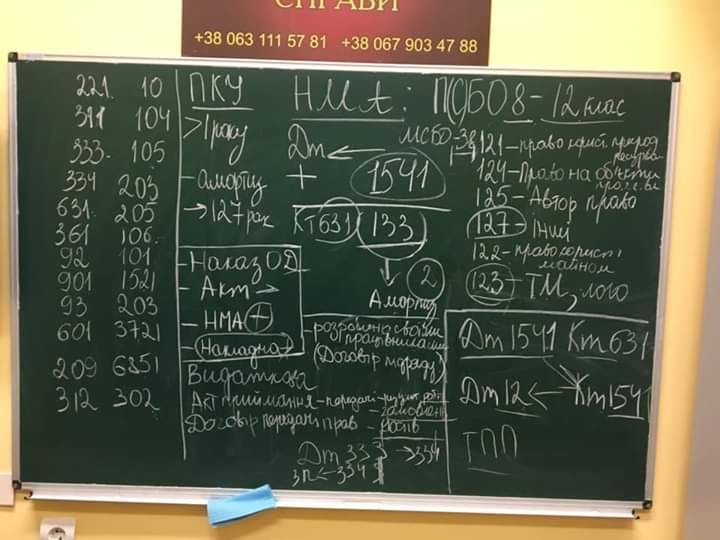 СПРАВИ
+38 063 111 57 81 +38 067 903 47 88
221. 10
311 104
333. 105
334 203
631. 205
361 106.
92 101
901 1521
93 203
601 3721
209 6851
312 302
ПКУ
> 1 року
- амортиз
→ 127 рах
- Наказ ОД
- Акт →
- НМА +
- Накладна
Видаткова
Акт приймання - передачі -
Договір передачі прав -
НМА: П(С)БО 8 - 12 клас
МСБО - 38
Дт ←
+ 1541
Кт 631 133
↓ 2
Амортиз
- розроблено своїми
працівниками
(Договір підряду)
Дт 333 → 334
334
121 - право корист. природ
ресурсам
124 - Право на об'єкти
пром. вл
125 - Автор права
127 - Інші
122 - право корист
майном
123 - ТМ, лого
Дт 1541 Кт 631
Дт 12 ← Кт 1541
ТПП